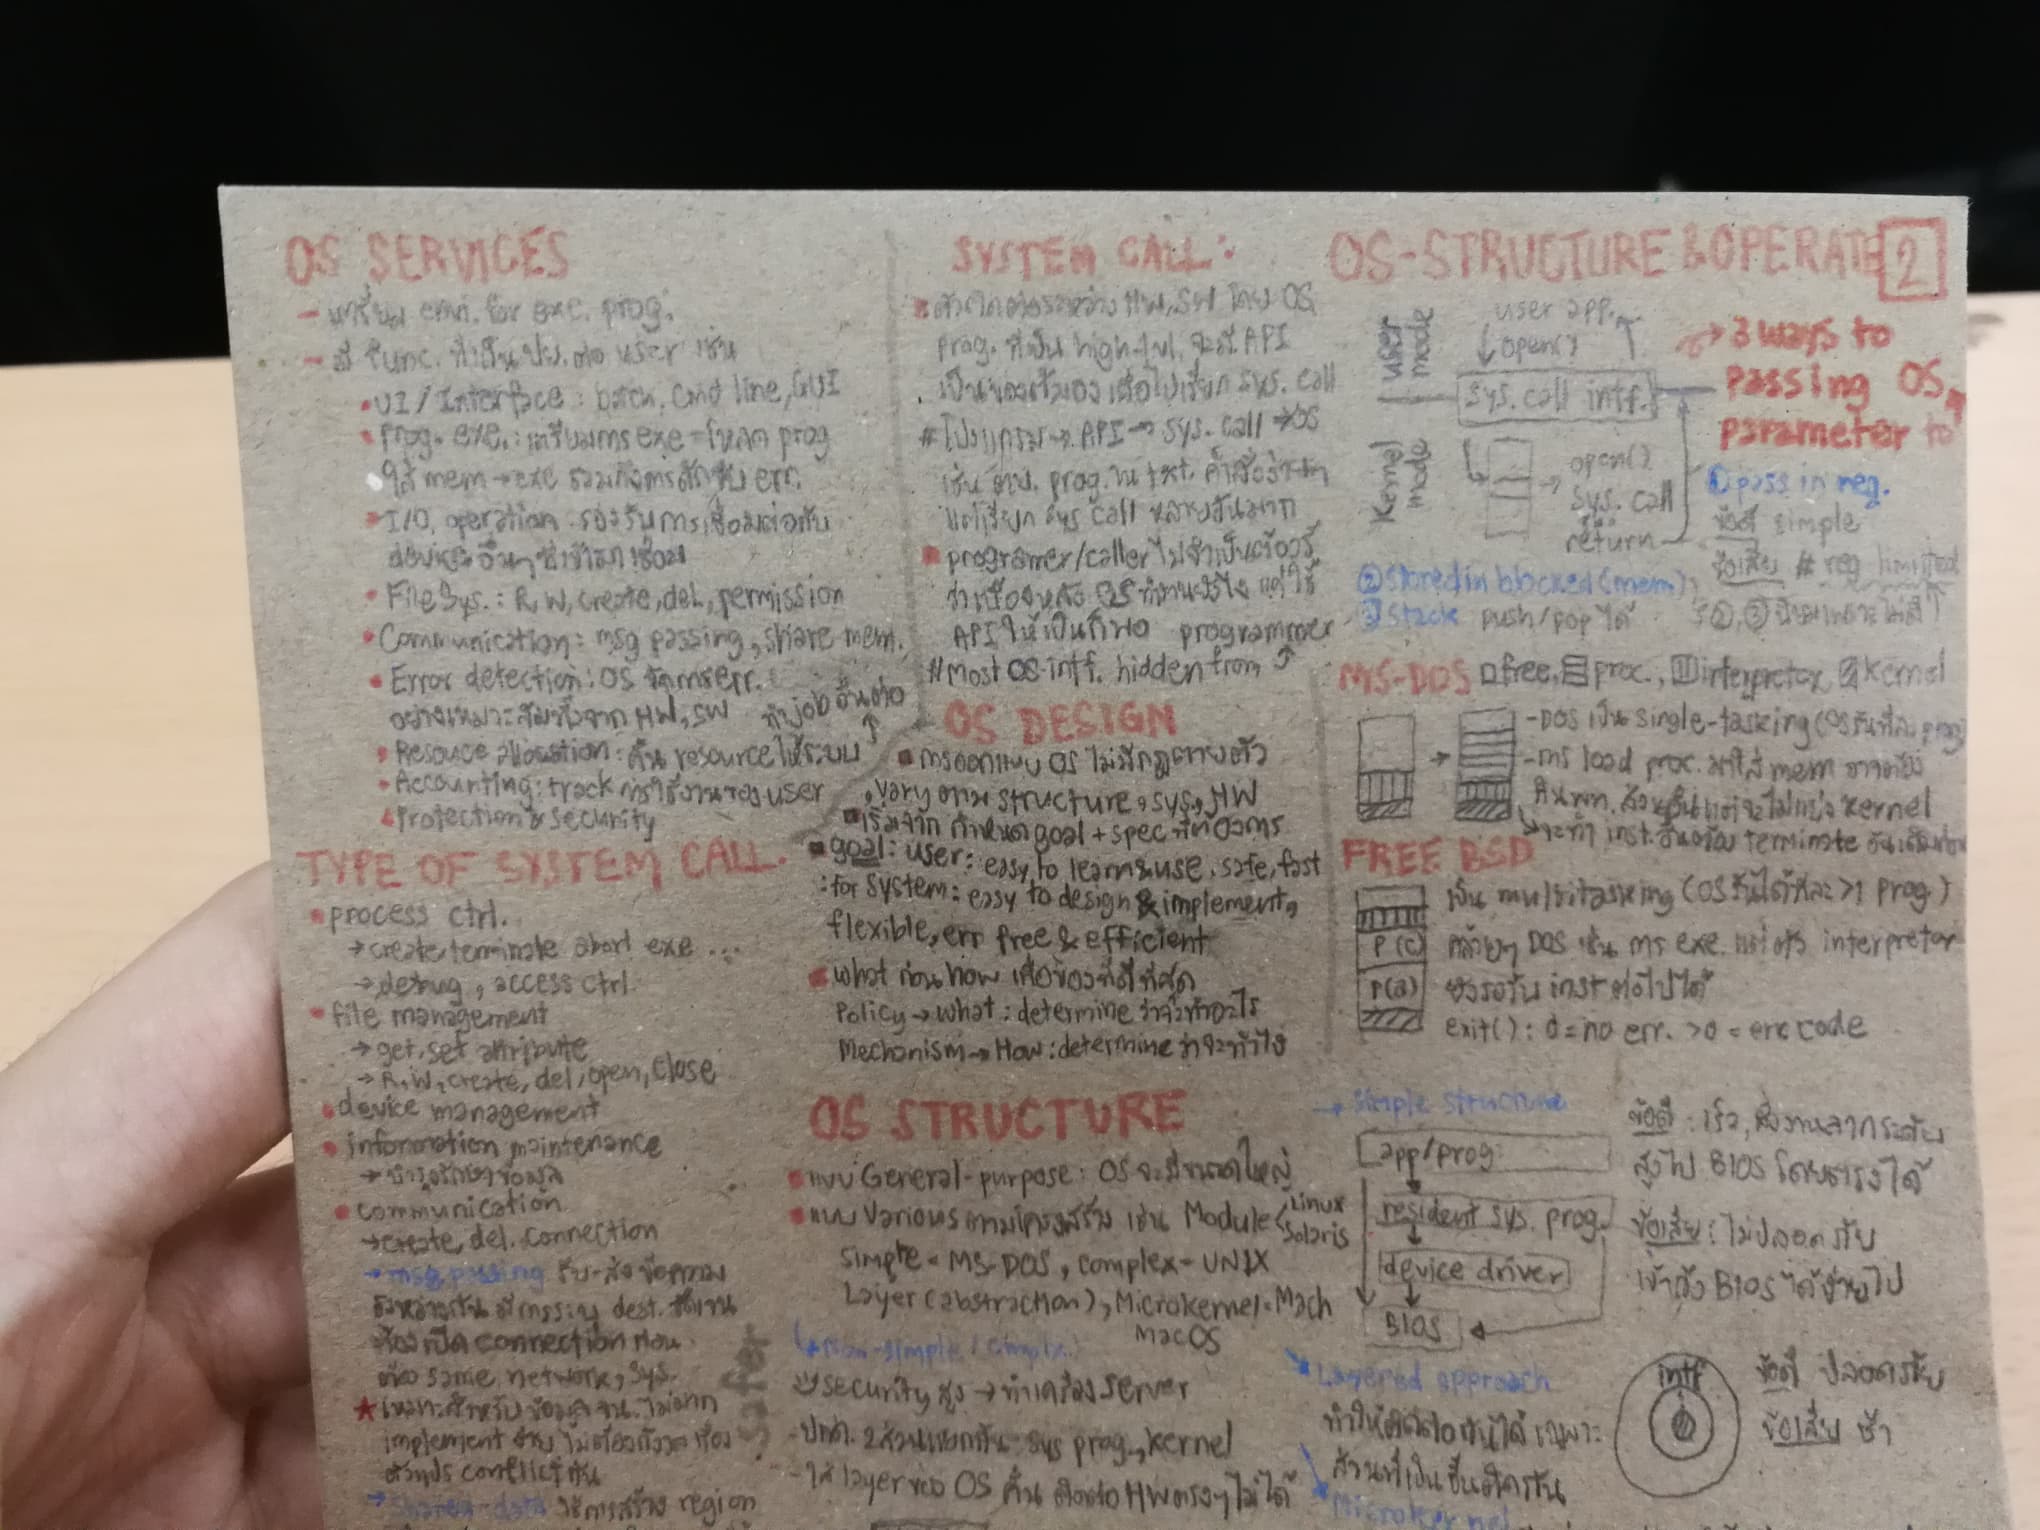 OS SERVICES
- เตรียม env. for exe. prog.
- มี func. ที่เป็น ปย. ต่อ user เช่น
• UI/Interface : batch, cmd line, GUI
• prog. exe. : เตรียมการ exe = โหลด prog
ใส่ mem → exe รวมถึงการดักจับ err.
• I/O, operation รองรับการเชื่อมต่อกับ
device อื่นๆ ที่เข้ามาเชื่อม
• File Sys. : R, W, create, del, permission
• Communication : msg passing, share mem.
• Error detection : OS จัดการ err.
อย่างเหมาะสมทั้งจาก HW, SW
ทำ job อื่นต่อ
• Resouce allocation : คืน resource ให้ระบบ
• Accounting : track การใช้งานของ user
• Protection & security
TYPE OF SYSTEM CALL.
• process ctrl.
→ create, terminate abort exe ...
→ debug, access ctrl.
• file management
→ get, set attribute
→ R, W, create, del, open, close
• device management
• information maintenance
→ บำรุงรักษาข้อมูล
• communication
→ create, del. connection
→ msg passing รับ-ส่งข้อความ
ระหว่างกัน มีการระบุ dest. ชัดเจน
ต้องเปิด connection ก่อน
ต้อง same network, sys.
★ เหมาะสำหรับข้อมูล จน. ไม่มาก
implement ง่าย ไม่ต้องกังวลเรื่อง
conflict กัน
→ Shared-data ใช้การสร้าง region
SYSTEM CALL :
ระหว่าง HW, SW โดย OS
prog. ที่เป็น high-lvl. จะมี API
เป็นของตัวเอง เพื่อไปเรียก sys. call
# โปรแกรม → API → sys. call → OS
เช่น prog. txt.
แต่เรียก sys call หลายอันมาก
• programer/caller ไม่จำเป็นต้องรู้
ว่าเบื้องหลัง OS ทำงานยังไง แค่ใช้
API ให้เป็นก็พอ programmer
# Most OS intf. hidden from
OS DESIGN
• การออกแบบ OS ไม่มีกฎตายตัว
, vary ตาม structure, sys, HW
• เริ่มจาก กำหนด goal + spec ที่ต้องการ
• goal : user : easy to learn & use, safe, fast
: for system : easy to design & implement,
flexible, err free & efficient
• what ก่อน how เพื่อของที่ดีที่สุด
Policy → what : determine ว่าจะทำอะไร
Mechanism → How : determine ว่าจะทำไง
OS STRUCTURE
• แบบ General-purpose : OS จะมีขนาดใหญ่
• แบบ Various ตามโครงสร้าง เช่น Module
Linux
Solaris
simple = MS-DOS, complex - UNIX
Layer (abstraction), Microkernel = Mach
MacOS
→ Non-simple / complx.
security สูง → ทำเครื่อง server
- 2 ส่วนแยกกัน = sys prog., kernel
- ใส่ layer ของ OS คั่น ติดต่อ HW ตรงๆ ไม่ได้
OS-STRUCTURE & OPERATE 2
user mode
user app.
open()
sys. call intf.
Kernel mode
open()
sys. call
return
→ 3 ways to
passing OS
parameter to
① pass in reg.
ข้อดี simple
ข้อเสีย # reg limited
② stored in blocked (mem)
③ stack push/pop ได้
MS-DOS free, proc., interpreter, kernel
- DOS เป็น single-tasking
- การ load proc. มาใส่ mem อาจต้อง
คืน พท. ส่วนอื่น แต่จะไม่แย่ง kernel
จะทำ inst. อื่นต้อง terminate อันเดิมก่อน
FREE BSD
เป็น multitasking (OS รันได้ทีละ >1 prog.)
P(c)
คล้ายๆ DOS เช่น การ exe. แต่ตัว interpreter
P(a)
ยังรอรับ inst ต่อไปได้
exit() : 0 = no err. >0 = err code
→ simple structure
app/prog.
resident sys. prog.
device driver
BIOS
ข้อดี : เร็ว, สั่งงานจากระดับ
สูงไป BIOS โดยตรงได้
ข้อเสีย : ไม่ปลอดภัย
เข้าถึง BIOS ได้ง่ายไป
Layered approach
ทำให้ติดต่อกันได้เฉพาะ
ส่วนที่เป็นชั้นติดกัน
intf
ข้อดี ปลอดภัย
ข้อเสีย ช้า
Microkernel